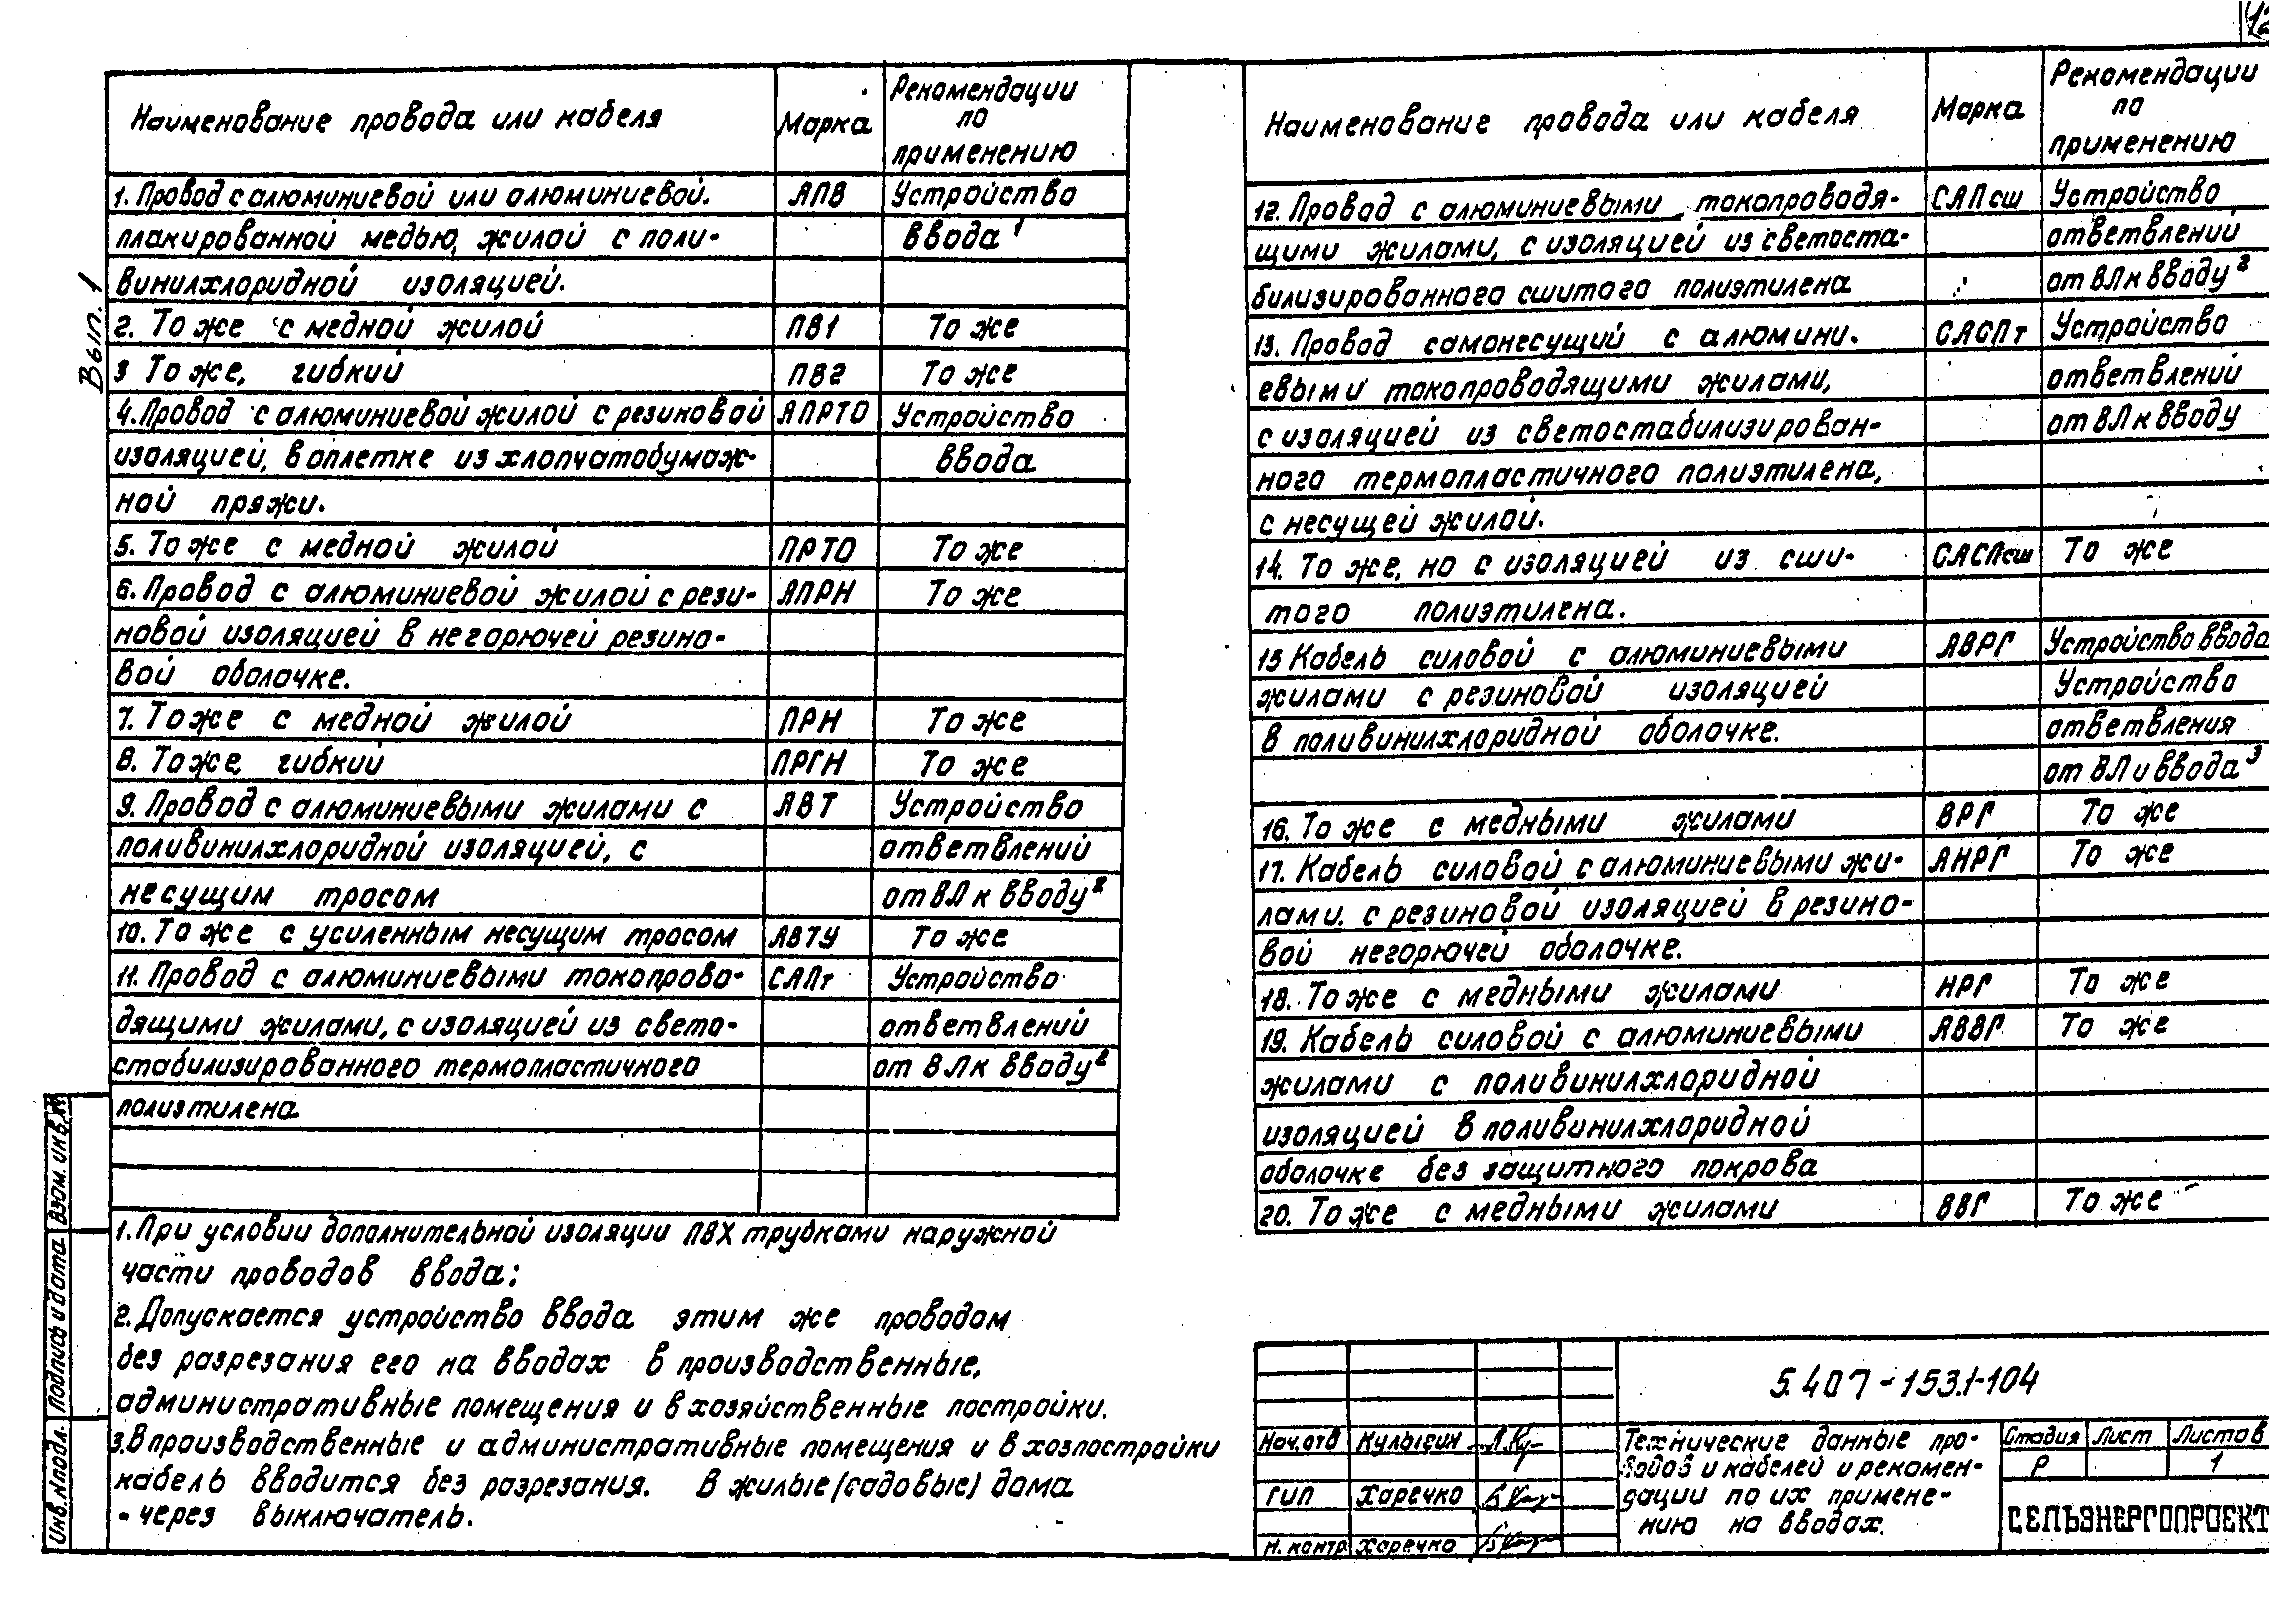 Вып. 1
Наименование провода или кабеля
Марка
Рекомендации
по
применению
1. Провод с алюминиевой или алюминиевой. АПВ Устройство
плакированной медью, жилой с поли- ввода ¹
винилхлоридной изоляцией.
2. То же с медной жилой ПВ1 То же
3 То же, гибкий ПВ2 То же
4. Провод с алюминиевой жилой с резиновой АПРТО Устройство
изоляцией, в оплетке из хлопчатобумаж- ввода
ной пряжи.
5. То же с медной жилой ПРТО То же
6. Провод с алюминиевой жилой с рези- АПРН То же
новой изоляцией в негорючей резино-
вой оболочке.
7. То же с медной жилой ПРН То же
8. То же, гибкий ПРГН То же
9. Провод с алюминиевыми жилами с АВТ Устройство
поливинилхлоридной изоляцией, с ответвлений
несущим тросом от ВЛ к вводу²
10. То же с усиленным несущим тросом АВТУ То же
11. Провод с алюминиевыми токопрово- САПт Устройство
дящими жилами, с изоляцией из свето- ответвлений
стабилизированного термопластичного от ВЛ к вводу²
полиэтилена
1. При условии дополнительной изоляции ПВХ трубками наружной
части проводов ввода;
2. Допускается устройство ввода этим же проводом
без разрезания его на вводах в производственные,
административные помещения и в хозяйственные постройки.
3. В производственные и административные помещения и в хозпостройки
кабель вводится без разрезания. В жилые (садовые) дома
- через выключатель.
Наименование провода или кабеля
Марка
Рекомендации
по
применению
12. Провод с алюминиевыми токопроводя- САПсш Устройство
щими жилами, с изоляцией из светоста- ответвлений
билизированного сшитого полиэтилена от ВЛ к вводу²
13. Провод самонесущий с алюмини. САСПт Устройство
евыми токопроводящими жилами, ответвлений
с изоляцией из светостабилизирован- от ВЛ к вводу
ного термопластичного полиэтилена,
с несущей жилой.
14. То же, но с изоляцией из сши- САСПсш То же
того полиэтилена.
15 Кабель силовой с алюминиевыми АВРГ Устройство ввода
жилами с резиновой изоляцией Устройство
в поливинилхлоридной оболочке. ответвления
от ВЛ и ввода³
16. То же с медными жилами ВРГ То же
17. Кабель силовой с алюминиевыми жи- АНРГ То же
лами. с резиновой изоляцией в резино-
вой негорючей оболочке.
18. То же с медными жилами НРГ То же
19. Кабель силовой с алюминиевыми АВВГ То же
жилами с поливинилхлоридной
изоляцией в поливинилхлоридной
оболочке без защитного покрова
20. То же с медными жилами ВВГ То же
Инв. № подл. Подпись и дата Взам. инв. №
5.407-153.1-104
Нач. отд Кулыгин
ГИП Харечко
Н. контр Харечко
Технические данные про-
водов и кабелей и рекомен-
дации по их примене-
нию на вводах.
Стадия Лист Листов
Р 1
СЕЛЬЭНЕРГОПРОЕКТ